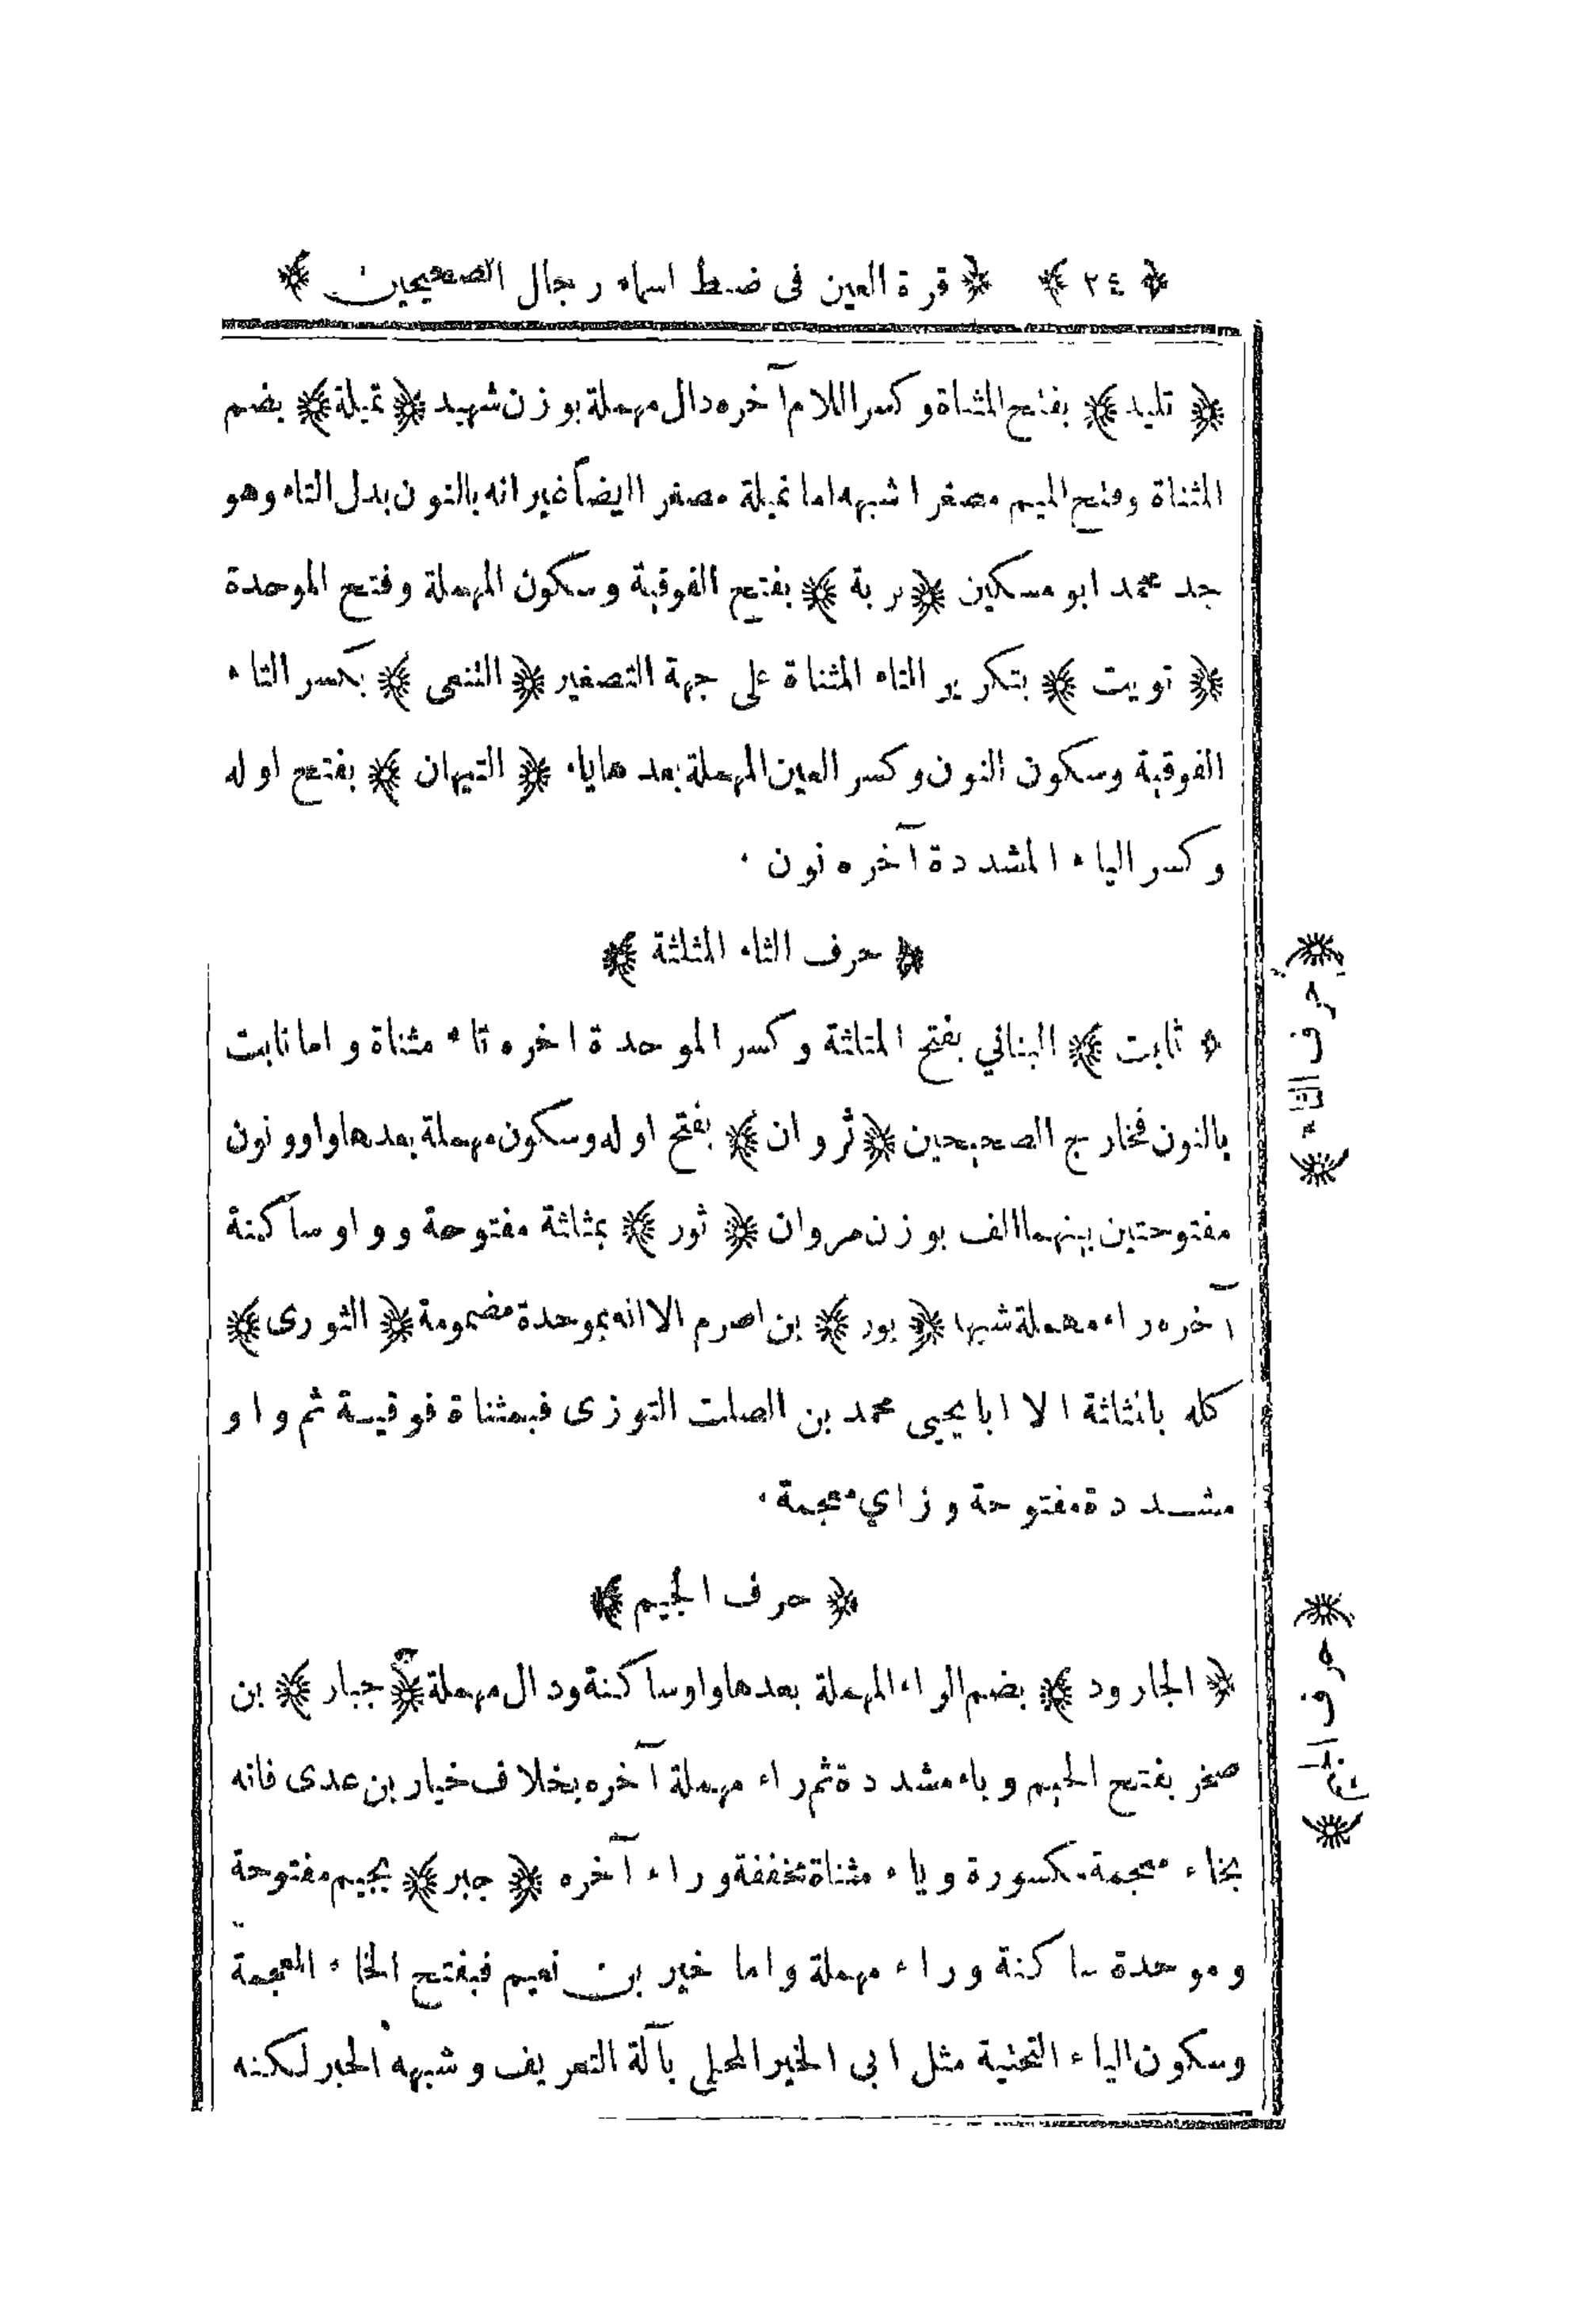 ﴿ ٢٤ ﴾ ﴿ قرة العين فى ضبط اسماء رجال الصحيحين ﴾
﴿ تليد ﴾ بفتح المثناة وكسر اللام آخره دال مهملة بوزن شهيد ﴿ تميلة ﴾ بضم
المثناة وفتح الميم مصغرا شبهه اما نميلة مصغرا ايضاً غير انه بالنون بدل التاء وهو
جد محمد ابو مسكين ﴿ تربة ﴾ بفتح الفوقية وسكون المهملة وفتح الموحدة
﴿ تويت ﴾ بتكرير التاء المثناة على جهة التصغير ﴿ التنعى ﴾ بكسر التاء
الفوقية وسكون النون وكسر العين المهملة بعدها ياء ﴿ التيهان ﴾ بفتح اوله
وكسر الياء المشددة آخره نون ۰
﴿ حرف الثاء المثلثة ﴾
﴿ ثابت ﴾ البناني بفتح المثلثة وكسر الموحدة اخره تاء مثناة واما نابت
بالنون فخارج الصحيحين ﴿ ثروان ﴾ بفتح اوله وسكون مهملة بعدها واو ونون
مفتوحتين بينهما الف بوزن مروان ﴿ ثور ﴾ بمثلثة مفتوحة وواو ساكنة
آخره راء مهملة شبهها ﴿ بور ﴾ بن اصرم الا انه بموحدة مضمومة ﴿ الثورى ﴾
كله بالمثلثة الا ابا يحيى محمد بن الصلت التوزى فبمثناة فوقية ثم واو
مشددة مفتوحة وزاي معجمة ۰
﴿ حرف الجيم ﴾
﴿ الجارود ﴾ بضم الراء المهملة بعدها واو ساكنة ودال مهملة ﴿ جبار ﴾ بن
صخر بفتح الجيم وباء مشددة ثم راء مهملة آخره بخلاف خيار بن عدى فانه
بخاء معجمة مكسورة وياء مثناة مخففة وراء آخره ﴿ جبر ﴾ بجيم مفتوحة
وموحدة ساكنة وراء مهملة واما خير بن نعيم فبفتح الخاء المعجمة
وسكون الياء التحتية مثل ابى الخير المحلى بآلة التعريف وشبهه الحبر لكنه
﴿ حرف الثاء ﴾
﴿ حرف الجيم ﴾